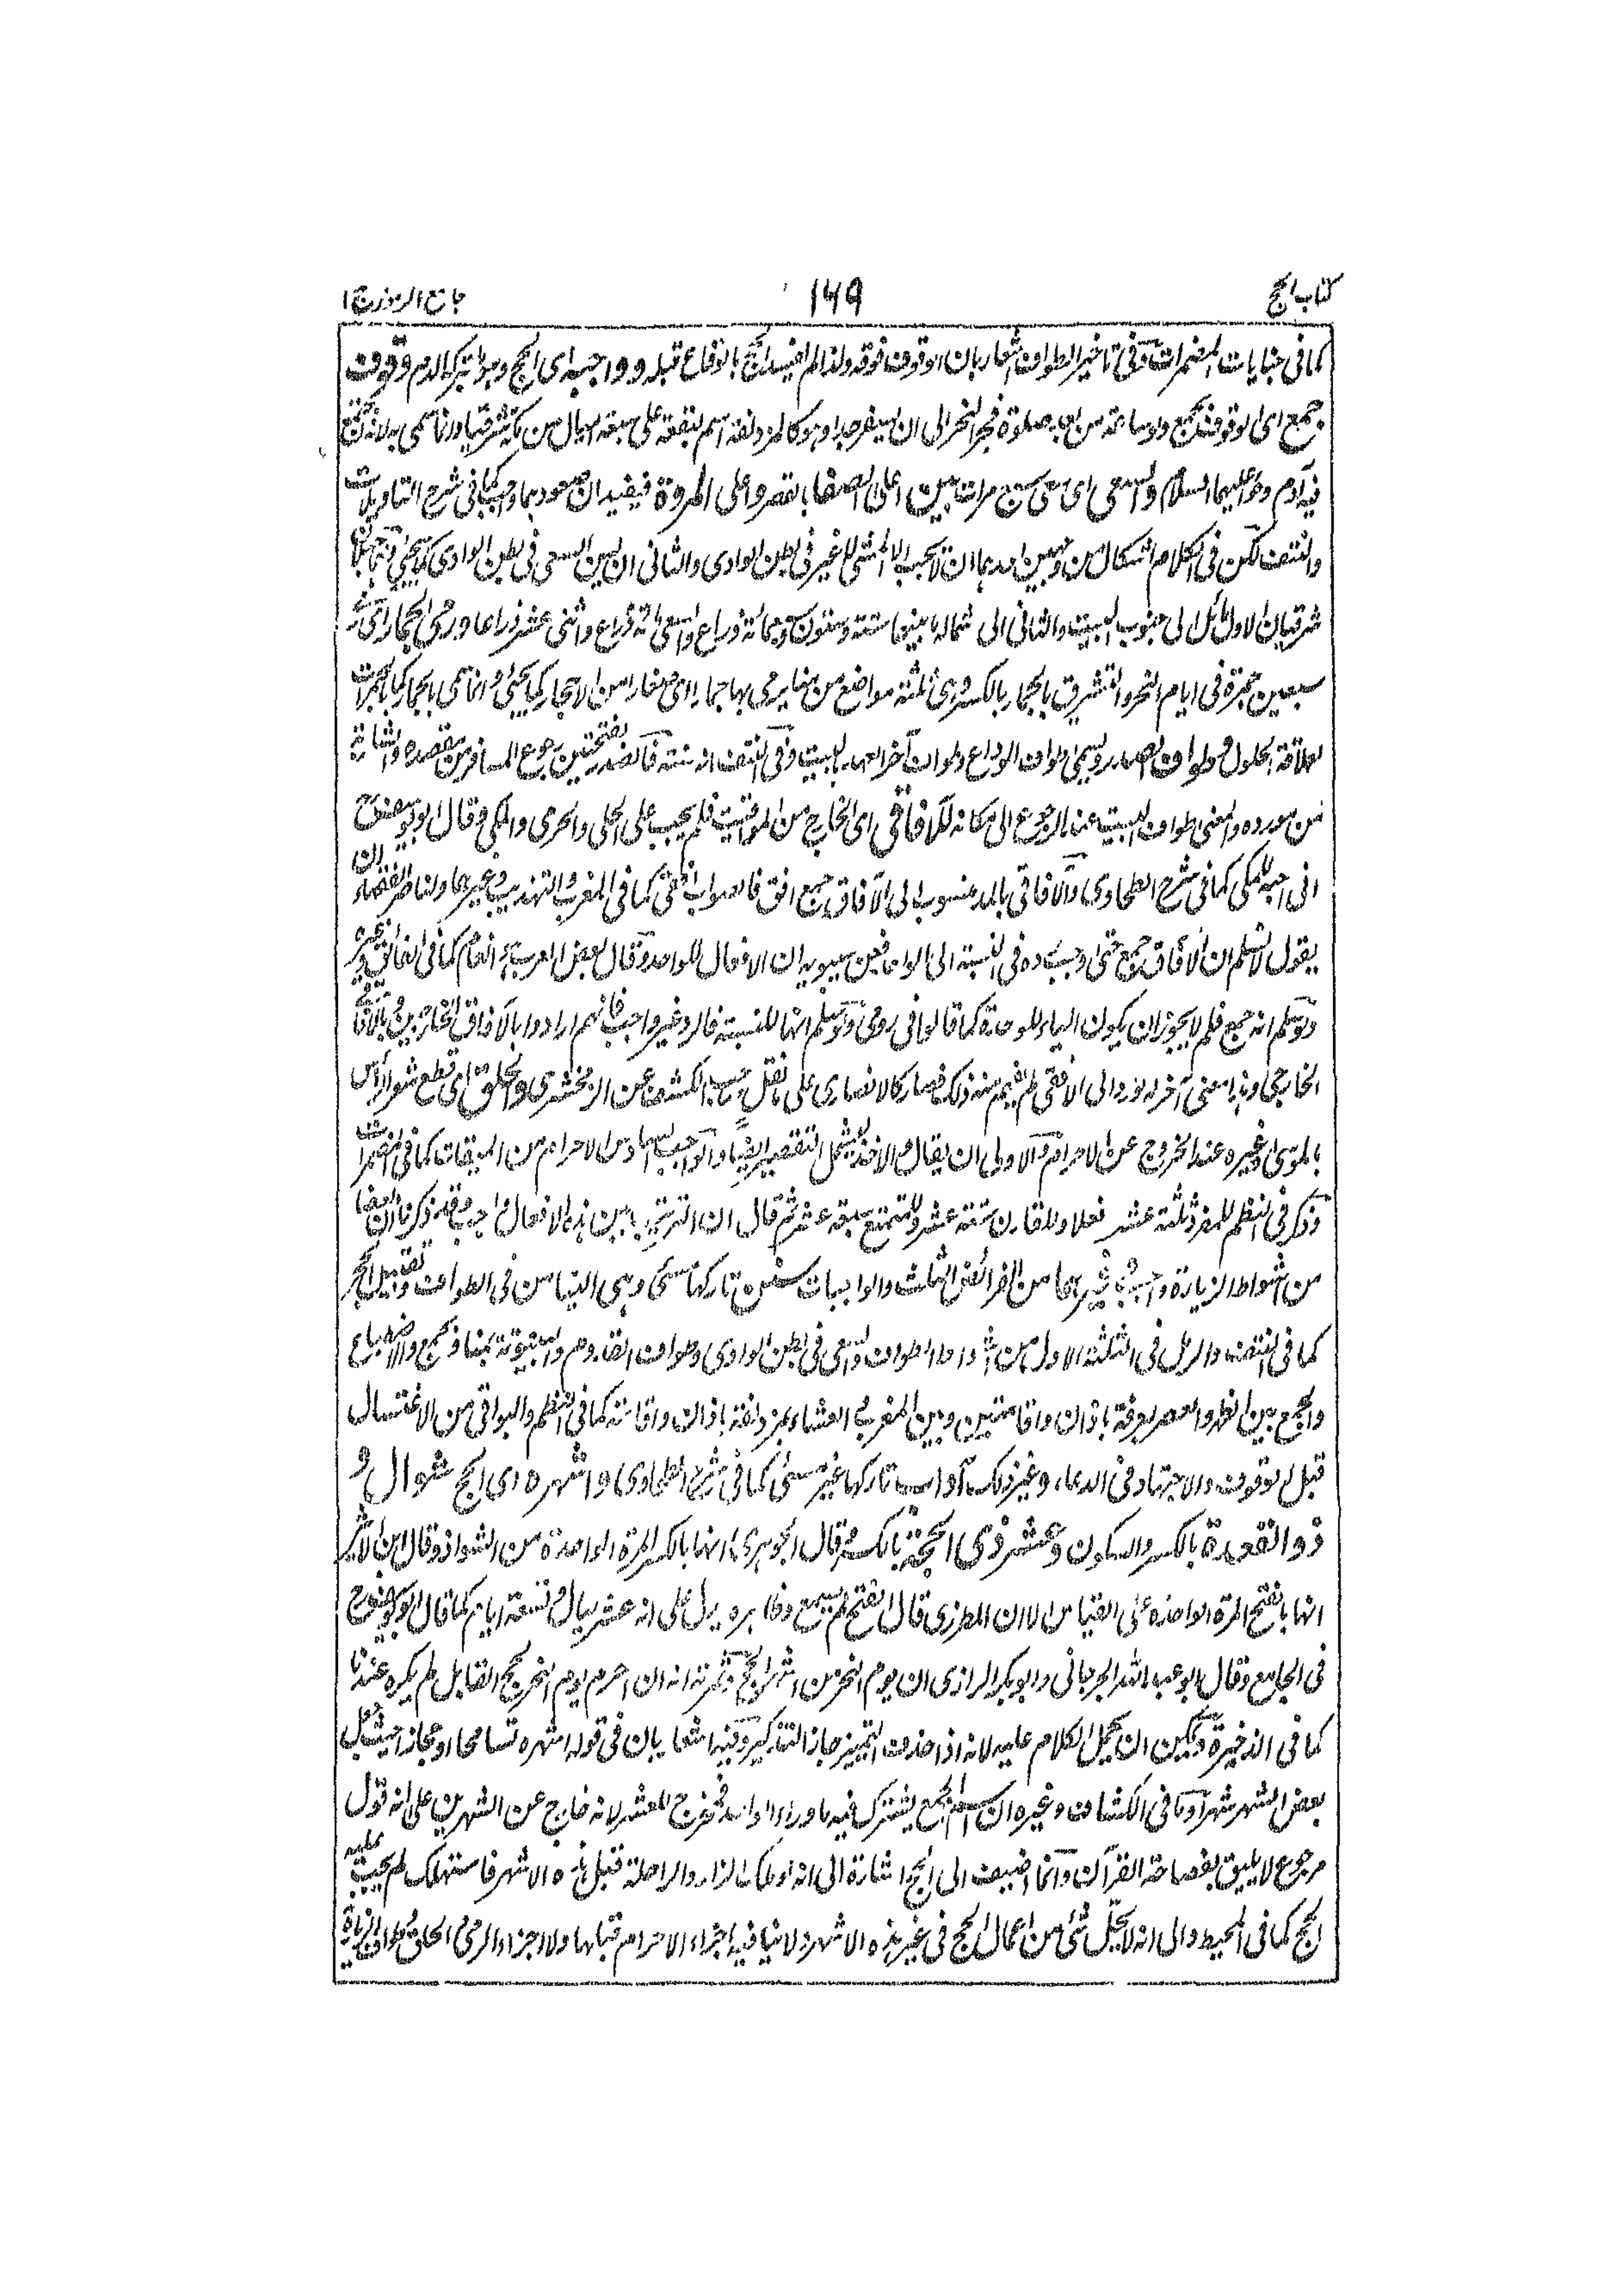 كتاب الحج
١٤٩
جامع الرموز ج ١
كما فى جنايات المضمرات وفى تاخير الطواف اشعار بان الوقوف فوقه ولذا لم يفسد الحج بالوقاع قبله و واجبه اى الحج وبتركه الدم وقوف
جمع اى الوقوف بجمع ولو ساعة من بعد صلوة فجر النحر الى ان يسفر جدا وهو كالمزدلفة اسم لبقعة على سبعة اميال من مكة شرقيا وانما سمى به لانه اجتمع
فيه آدم وحوا عليهما السلام والسعى اى سعى سبع مرات بين اعلى الصفا بالقصر واعلى المروة فيفيد ان صعودهما واجب كما فى شرح التاويلات
والنتف لكن فى الكلام اشكال من وجهين احدهما ان لا يجب الا المشى للغير فى بطن الوادى والثانى ان يسن السعى فى بطن الوادى كما يجئ
شرقيان الاول مائل الى جنوب البيت والثانى الى شماله ما بينهما ستة وستون وسبعمائة ذراع واثنى عشر ذراعا ورمى الجمار اى
سبعين جمرة فى ايام النحر والتشريق بالجمار بالكسر وهى ثلثة مواضع من منا يرمى بها جمارا اى صغارا من الاحجار كما يجئ وانما سمى بالجمار كما بالجمرات
لعلاقة الحلول وطواف الصدر ويسمى طواف الوداع وطواف آخر العهد بالبيت وفى النتف انه سنة فالصدر بفتحتين رجوع المسافر من مقصده والشاربة
من مورده والمعنى طواف البيت عند الرجوع الى مكانه للآفاقى اى الخارج من المواقيت فلم يجب على الحلى والحرمى والمكى وقال ابو يوسف رح
انى احبه للمكى كما فى شرح الطحاوى والآفاقى بالمد منسوب الى الآفاق جمع افق فالصواب افقى كما فى المغرب والتهذيب وغيرهما ولناظر الفقهاء ان
يقول لا نسلم ان الآفاق جمع حتى وجب رده فى النسبة الى الواحد فعن سيبويه ان الافعال للواحد وقال بعض العرب هو انعام كما فى الفائق وغيره
ولو سلم انه جمع فلم لا يجوز ان يكون الياء للوحدة كما قالوا فى رومى ولو سلم انها للنسبة فالرد غير واجب فانهم ارادوا بالآفاق الخارجين وبالآفاقى
الخارجى وهذا معنى آخر لو رد الى الافقى لم يفهم منه ذلك فصار كالانصارى على ما نقل صاحب الكشف عن الزمخشرى والحلق اى قطع شعر الرأس
بالموسى وغيره عند الخروج عن الاحرام والاولى ان يقال والاخذ ليشمل التقصير ايضا والواجب السادس الاحرام من الميقات كما فى المضمرات
وذكر فى النظم للمفرد ثلثة عشر فعلا وللقارن ستة عشر وللمتمتع سبعة عشر ثم قال ان الترتيب بين هذه الافعال واجب وقد ذكرنا ان بعضا
من اشواط الزيارة واجب وغيرهما من الفرائض الثلث والواجبات سنن تاركها مسئ وهى التيامن فى الطواف وتقبيل الحجر
كما فى النتف والرمل فى الثلثة الاول من اشواط الطواف والسعى فى بطن الوادى وطواف القدوم والبيتوتة بمنا وبجمع والاضطباع
والجمع بين الظهر والعصر بعرفة باذان واقامتين وبين المغرب والعشاء بمزدلفة باذان واقامة كما فى النظم والبواقى من الاغتسال
قبل الوقوف والاجتهاد فى الدعاء وغير ذلك آداب تاركها غير مسئ كما فى شرح الطحاوى واشهره اى الحج شوال و
ذو القعدة بالكسر والسكون وعشر ذى الحجة بالكسر قال الجوهرى انها بالكسر المرة الواحدة من الشواذ وقال ابن الاثير
انها بالفتح المرة الواحدة على القياس الا ان المطرزى قال الفتح لم يسمع وظاهره يدل على انه عشر ليال وتسعة ايام كما قال ابو يوسف رح
فى الجامع وقال ابو عبد الله الجرجانى وابو بكر الرازى ان يوم النحر من اشهر الحج وثمرته انه ان احرم يوم النحر بحج القابل لم يكره عندنا
كما فى الذخيرة ويمكن ان يحمل الكلام عليه لانه اذا حذف التمييز جاز التذكير وفيه اشعار بان فى قوله اشهره تسامحا او مجازا حيث جعل
بعض الشهر شهرا وما فى الكشاف وغيره ان اسم الجمع يشترك فيه ما وراء الواحد فمخرج للعشر لانه خارج عن الشهرين على انه قول
مرجوع لا يليق بفصاحة القرآن وانما اضيف الى الحج اشارة الى انه لو ملك الزاد والراحلة قبل هذه الاشهر فاستهلك لم يجب عليه
الحج كما فى المحيط والى انه لا يحل شئ من اعمال الحج فى غير هذه الاشهر ولا ينافيه اجزاء الاحرام قبلها ولا اجزاء الرمى والحلق وطواف الزيارة